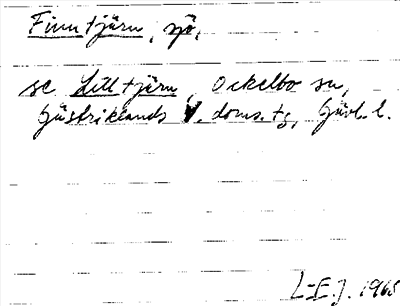 Finntjärn, sjö,
se Lilltjärn, Ockelbo sn,
Gästriklands V. doms.tg, Gävl. l.
L-E.J. 1965